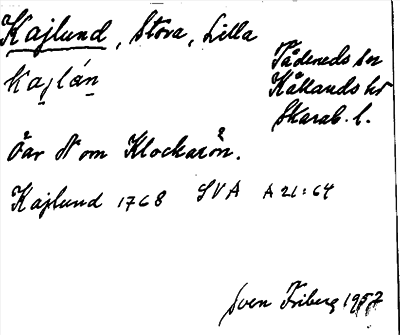 Kajlund, Stora, Lilla
Tådeneds sn
Kajlán
Kållands hd
Skarab. l.
Öar N om Klockarön.
Kajlund 1768 SVA A 21:64
Sven Friberg 1957